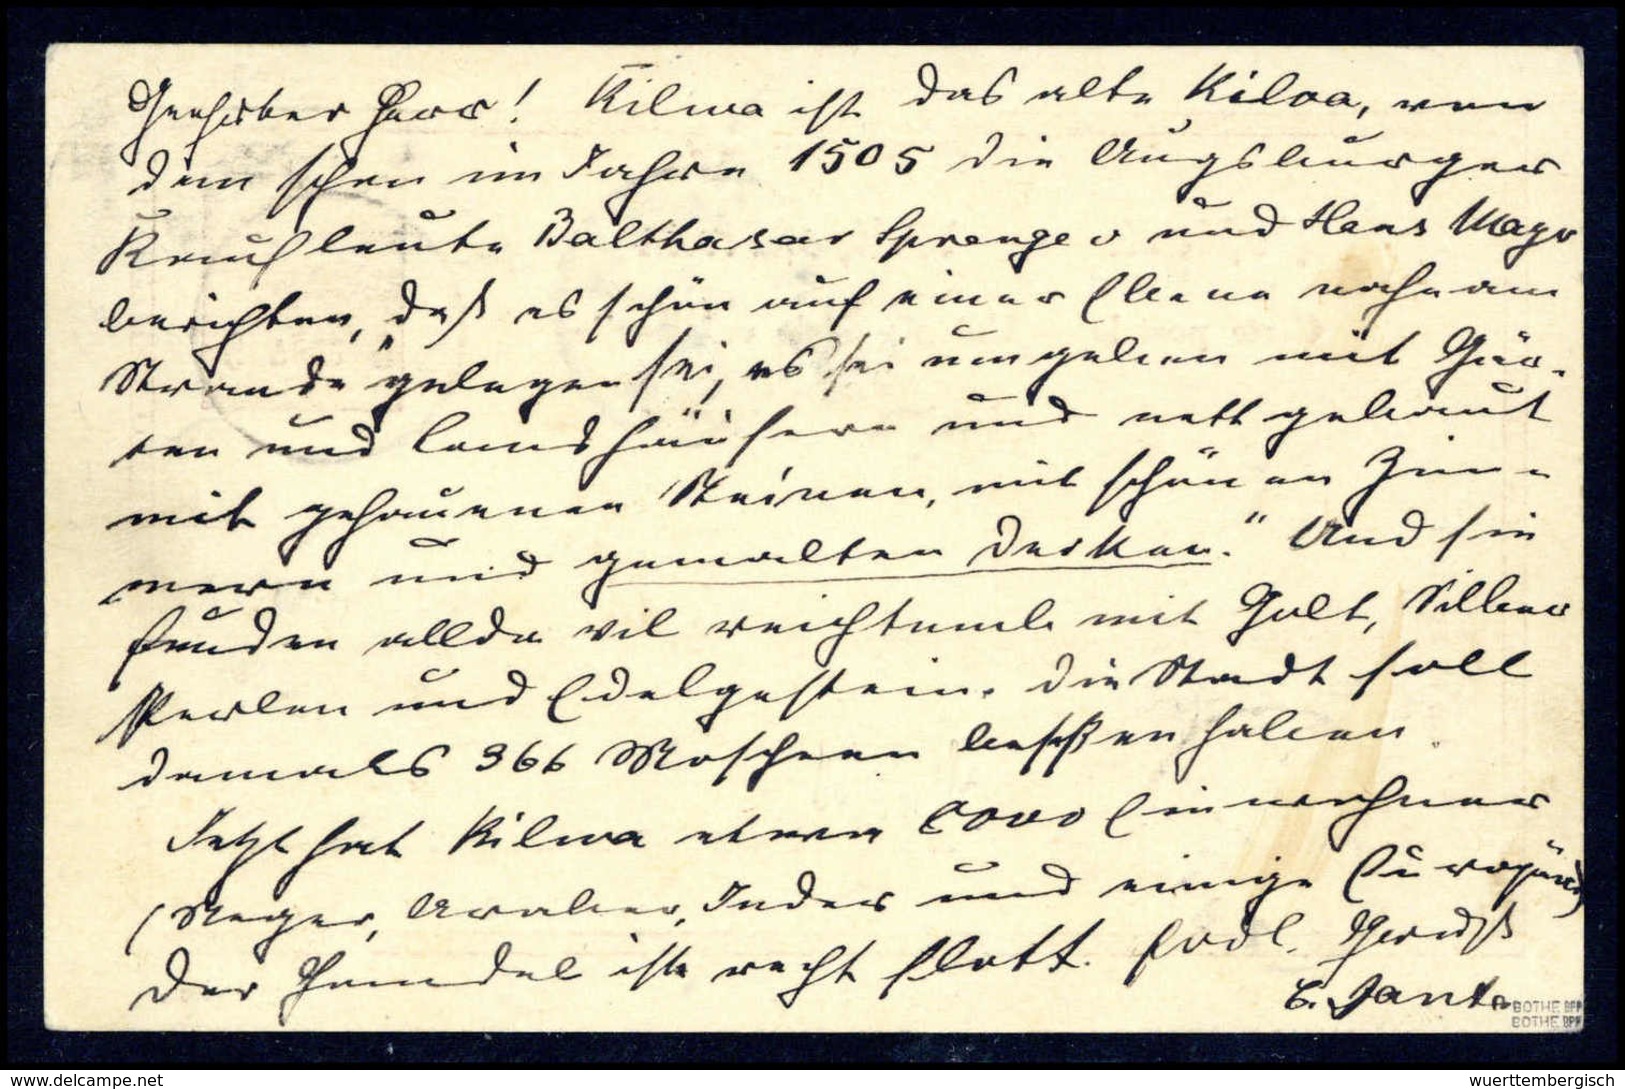 Geehrter Herr! Kilwa ist das alte Kiloa, von
dem schon im Jahre 1505 die Augsburger
Kaufleute Balthasar Sprenger und Hans Mayr
berichten, daß es schön auf einer Ebene nahe am
Strande „gelegen sei, es sei umgeben mit Gär-
ten und Landhäusern und nett gebaut
mit gehauenen Steinen, mit schönen Zim-
mern und gemalten Decken.“ Und sie
funden allda vil reichtumb mit Golt, Silber
Perlen und Edelgestein. Die Stadt soll
damals 366 Moscheen besessen haben.
Jetzt hat Kilwa etwa Einwohner
(Neger, Araber, Inder und einige Europäer)
Der Handel ist recht flott. Frdl. Gruß
C. Janke
BOTHE BPP
BOTHE BPP
www.delcampe.net
wuerttembergisch